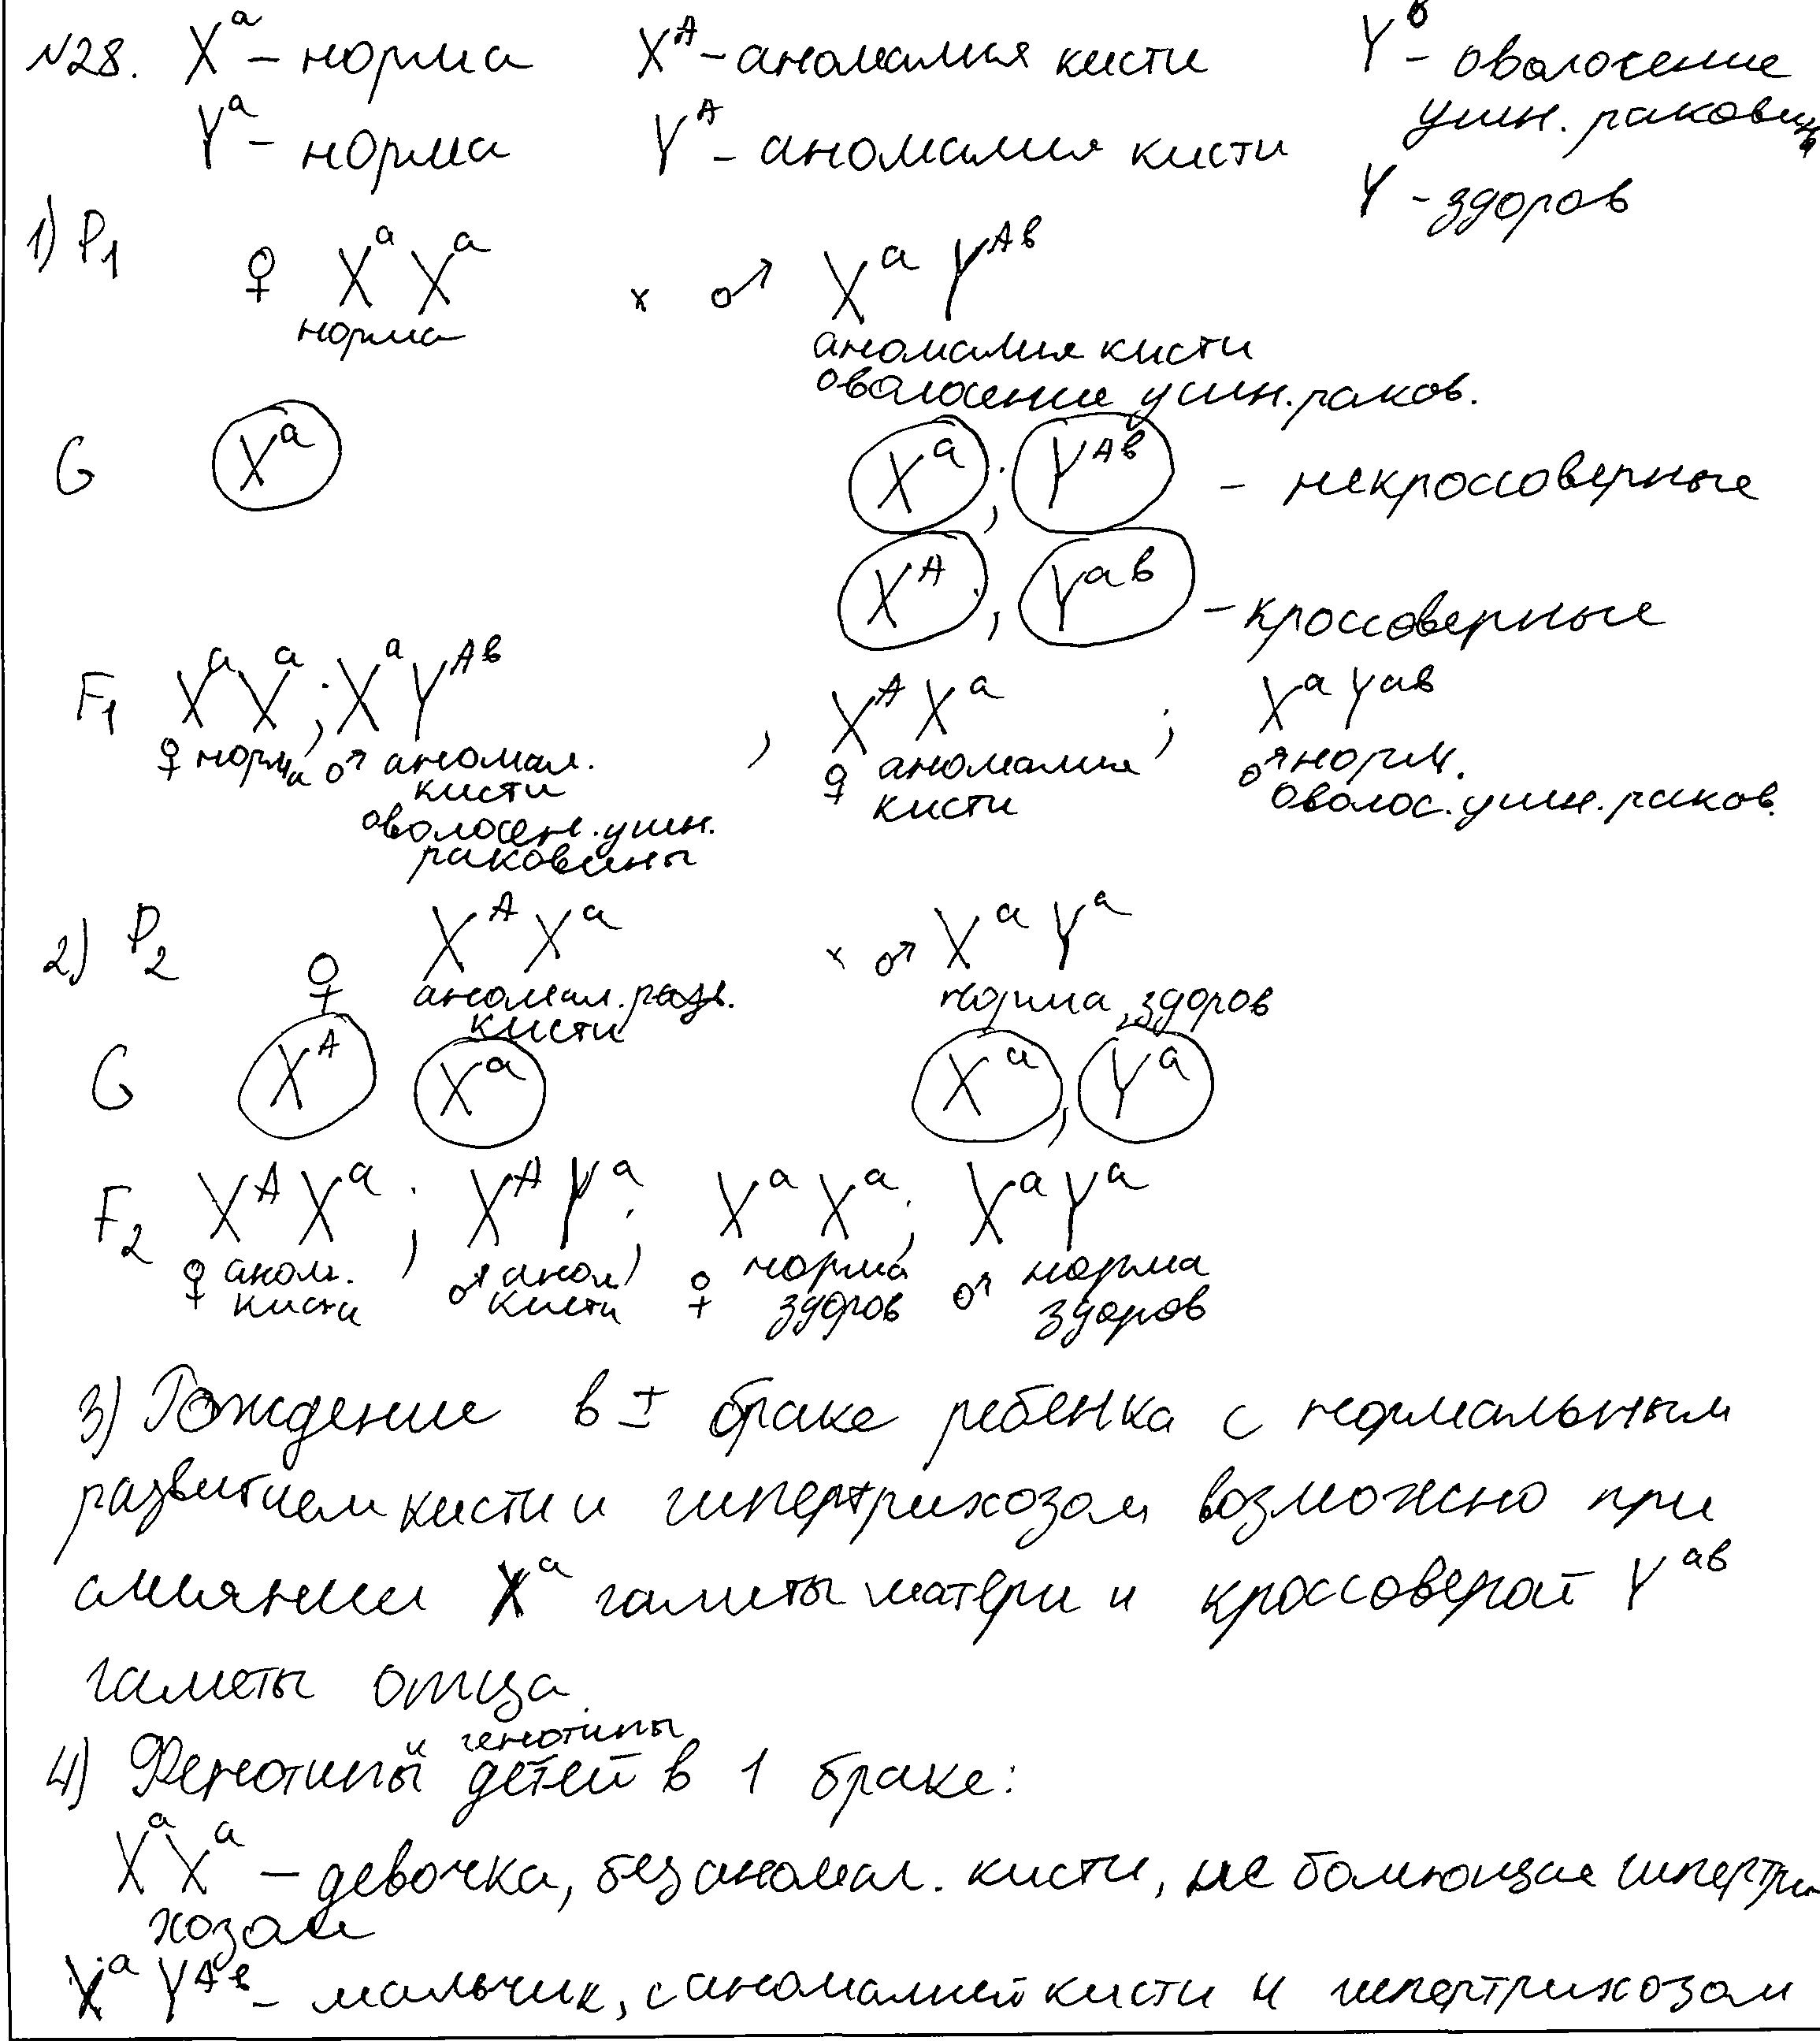 N28. Xᵃ – норма Xᴬ – аномалия кисти Yᵇ – оволосение
Yᵃ – норма Yᴬ – аномалия кисти ушн. раковин
Y – здоров
1) P₁ ♀ XᵃXᵃ x ♂ XᵃYᴬᵇ
норма аномалия кисти
оволосение ушн. раков.
G Xᵃ Xᵃ; Yᴬᵇ – некроссоверные
Xᴬ; Yᵃᵇ – кроссоверные
F₁ XᵃXᵃ; XᵃYᴬᵇ, XᴬXᵃ; XᵃYᵃᵇ
♀ норма ♂ аномал. ♀ аномалия ♂ норм.
кисти кисти оволос. ушн. раков.
оволосен. ушн.
раковины
2) P₂ ♀ XᴬXᵃ x ♂ XᵃYᵃ
аномал. разв. норма, здоров
кисти
G Xᴬ Xᵃ Xᵃ, Yᵃ
F₂ XᴬXᵃ; XᴬYᵃ; XᵃXᵃ; XᵃYᵃ
♀ аном. ♂ аном ♀ норма ♂ норма
кисти кисти здоров здоров
3) Рождение в I браке ребенка с нормальным
развитием кисти и гипертрихозом возможно при
слиянии Xᵃ гаметы матери и кроссоверой Yᵃᵇ
гаметы отца.
4) Фенотипы и генотипы детей в 1 браке:
XᵃXᵃ – девочка, без аномал. кисти, не болеющие гипертри
хозом
XᵃYᴬᵇ – мальчик, с аномалией кисти и гипертрихозом